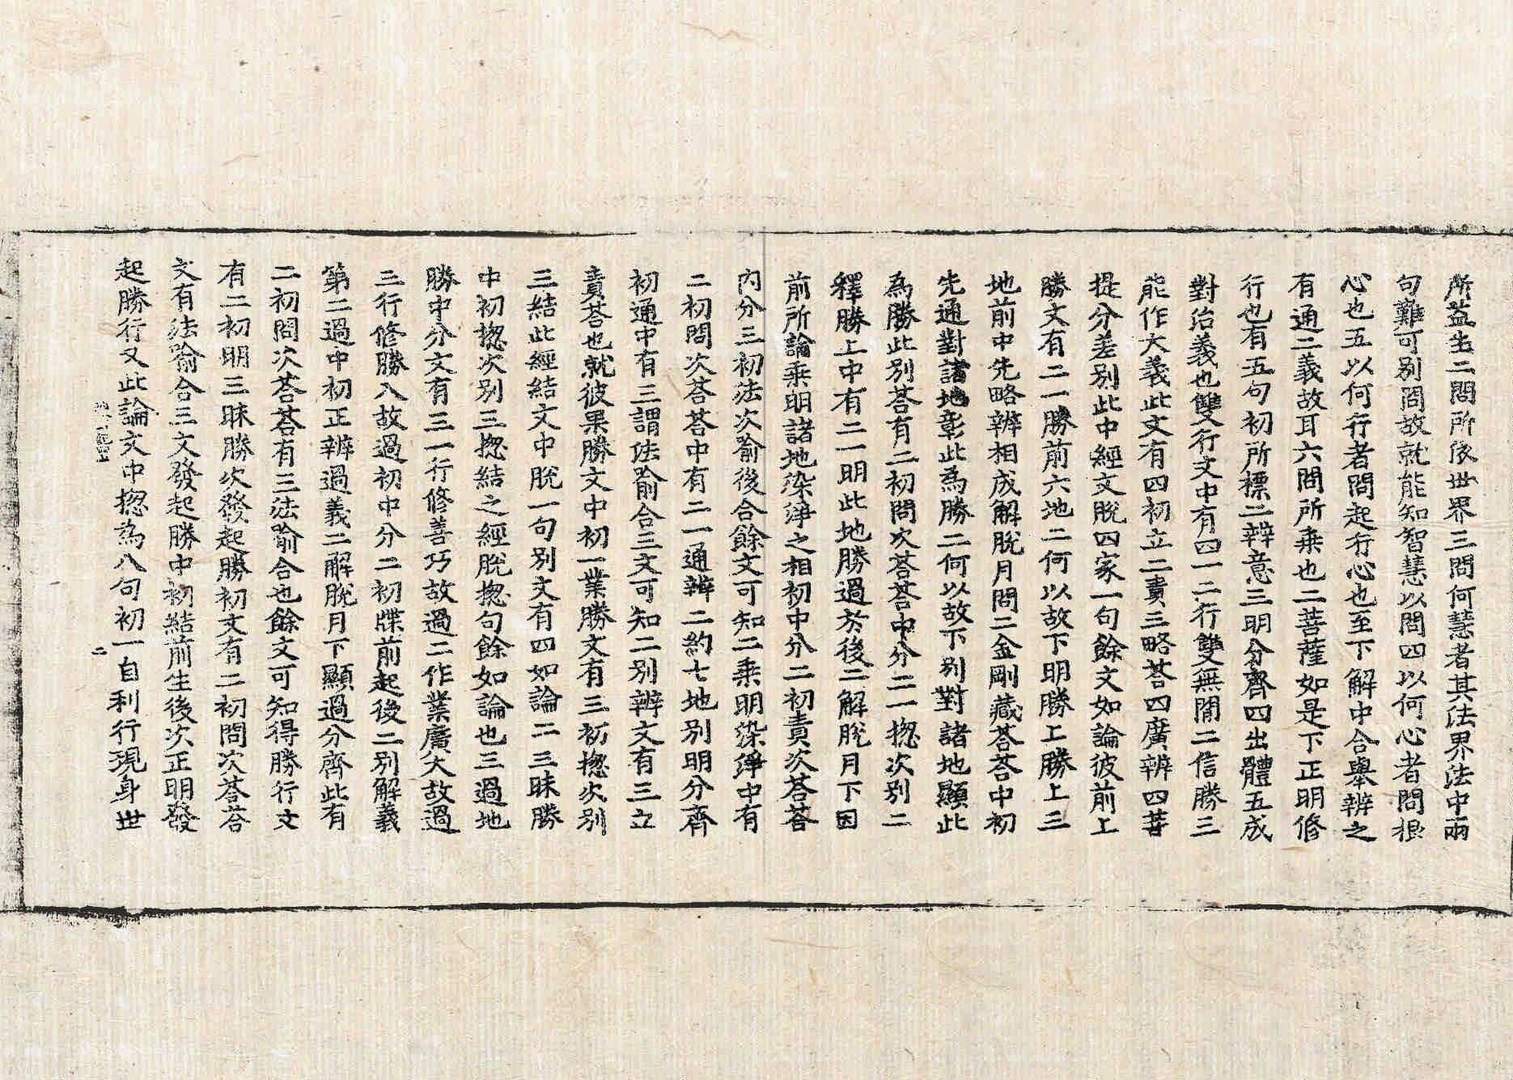 所益生二問所依世界三問何慧者其法界法中兩
句難可別問故就能知智慧以問四以何心者問根
心也五以何行者問起行心也至下解中合舉辨之
有通二義故耳六問所乘也二菩薩如是下正明修
行也有五句初所標二辨意三明分齊四出體五成
對治義也雙行文中有四一二行雙無間二信勝三
能作大義此文有四初立二責三略荅四廣辨四菩
提分差別此中經文脫四家一句餘文如論彼前上
勝文有二一勝前六地二何以故下明勝上勝上三
地前中先略辨相成解脫月問二金剛藏荅荅中初
先通對諸地彰此為勝二何以故下別對諸地顯此
為勝此別荅有二初問次荅荅中分二一捴次別二
釋勝上中有二一明此地勝過於後二解脫月下因
前所論乘明諸地染淨之相初中分二初責次荅荅
內分三初法次喻後合餘文可知二乘明染淨中有
二初問次荅荅中有二一通辨二約七地別明分齊
初通中有三謂法喻合三文可知二別辨文有三立
責荅也就彼果勝文中初一業勝文有三初捴次別
三結此經結文中脫一句別文有四如論二三昧勝
中初捴次別三捴結之經脫捴句餘如論也三過地
勝中分文有三一行修善巧故過二作業廣大故過
三行修勝入故過初中分二初牒前起後二別解義
第二過中初正辨過義二解脫月下顯過分齊此有
二初問次荅荅有三法喻合也餘文可知得勝行文
有二初明三昧勝次發起勝初文有二初問次荅荅
文有法喻合三文發起勝中初結前生後次正明發
起勝行又此論文中捴為八句初一自利行現身世
二